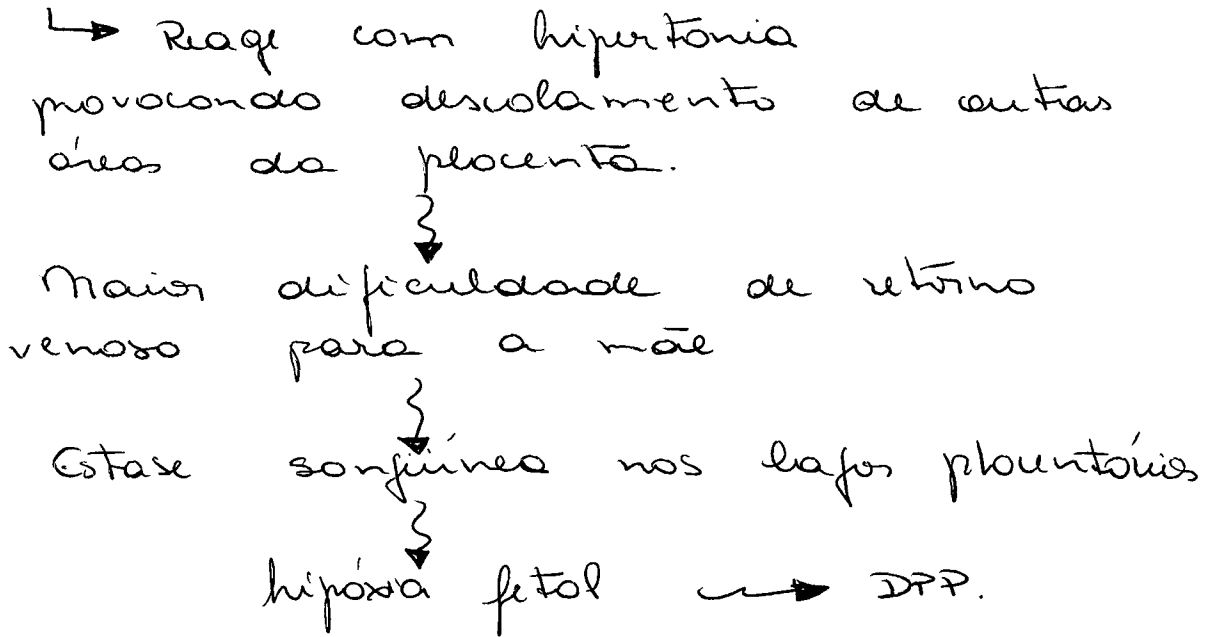 ↳ Reage com hipertonia
provocando descolamento de outras
áreas da placenta.
Maior dificuldade de retorno
venoso para a mãe
Estase sangüínea nos lagos placentários
hipóxia fetal → DPP.